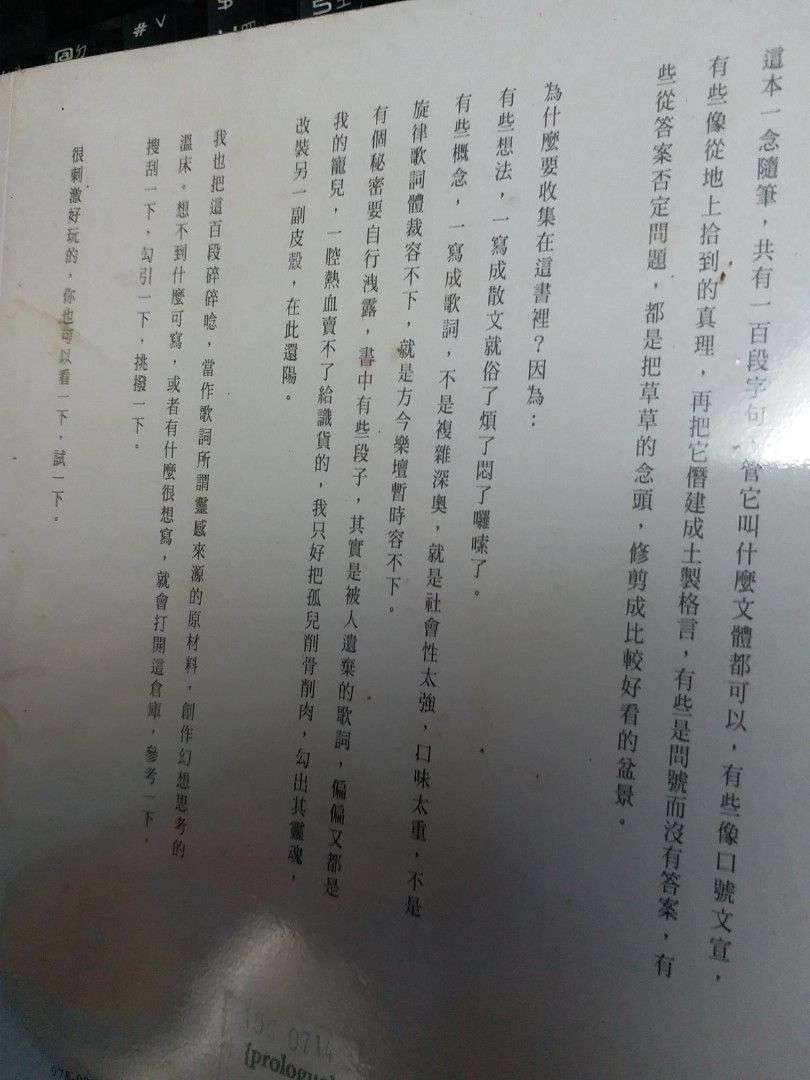 這本一念隨筆，共有一百段字句，管它叫什麼文體都可以，有些像口號文宣，
有些像從地上拾到的真理，再把它僭建成土製格言，有些是問號而沒有答案，有
些從答案否定問題，都是把草草的念頭，修剪成比較好看的盆景。
為什麼要收集在這書裡？因為：
有些想法，一寫成散文就俗了煩了悶了囉嗦了。
有些概念，一寫成歌詞，不是複雜深奧，就是社會性太強，口味太重，不是
旋律歌詞體裁容不下，就是方今樂壇暫時容不下。
有個秘密要自行洩露，書中有些段子，其實是被人遺棄的歌詞，偏偏又都是
我的寵兒，一腔熱血賣不了給識貨的，我只好把孤兒削骨削肉，勾出其靈魂，
改裝另一副皮殼，在此還陽。
我也把這百段碎碎唸，當作歌詞所謂靈感來源的原材料，創作幻想思考的
溫床。想不到什麼可寫，或者有什麼很想寫，就會打開這倉庫，參考一下，
搜刮一下，勾引一下，挑撥一下。
很刺激好玩的，你也可以看一下，試一下。
15c 0714
{prologue}
# ㄅ